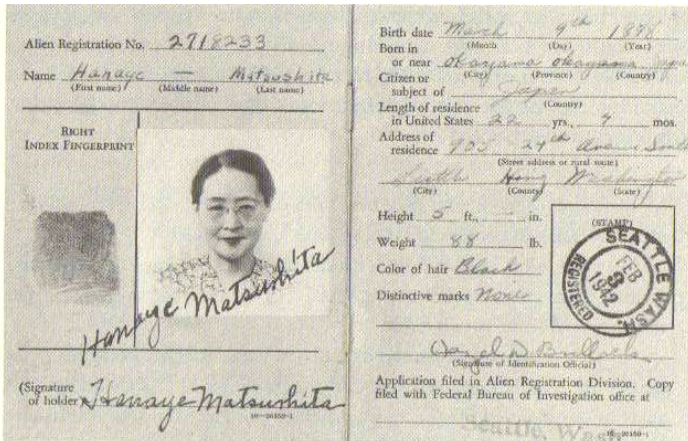 Alien Registration No. 2718233
Name Hanaye — Matsushita
(First name) (Middle name) (Last name)
RIGHT
INDEX FINGERPRINT
Hanaye Matsushita
(Signature
of holder) Hanaye Matsushita
16—20159-1
Birth date March 9th 1898
(Month (Day) (Year)
Born in
or near Okayama Okayama
(City) (Province) (Country)
Citizen or
subject of Japan
(Country)
Length of residence
in United States 22 yrs., mos.
Address of
residence 905 24th Avenue South
(Street address or rural route)
Seattle King Washington
(City) (County) (State)
Height 5 ft., — in.
Weight 88 lb.
Color of hair Black
Distinctive marks None
(STAMP)
SEATTLE WASH.
FEB
3
1942
REGISTERED
(Signature of Identification Official)
Application filed in Alien Registration Division. Copy
filed with Federal Bureau of Investigation office at
Seattle, Wash.
16—20159-1